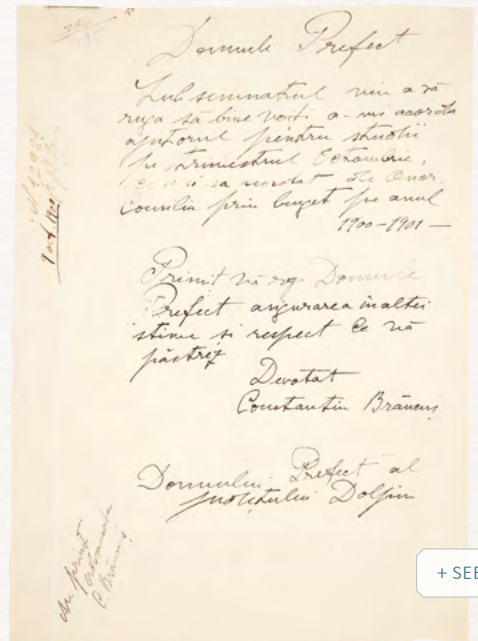 Domnule Prefect
Subsemnatul vin a vă
ruga să bine voiți, a-mi acorda
ajutorul pentru studii
pe trimestrul Octombrie,
ce mi s'a acordat de Onor.
Consiliu prin buget pe anul
1900-1901 —
Primit vă rog Domnule
Prefect asigurarea înaltei
stime si respect ce vă
păstrez
Devotat
Constantin Brâncuș
Domnului Prefect al
județului Doljiu
Am primit
ordonanța
C. Brâncuș
9 oct. 1900
+ SEE